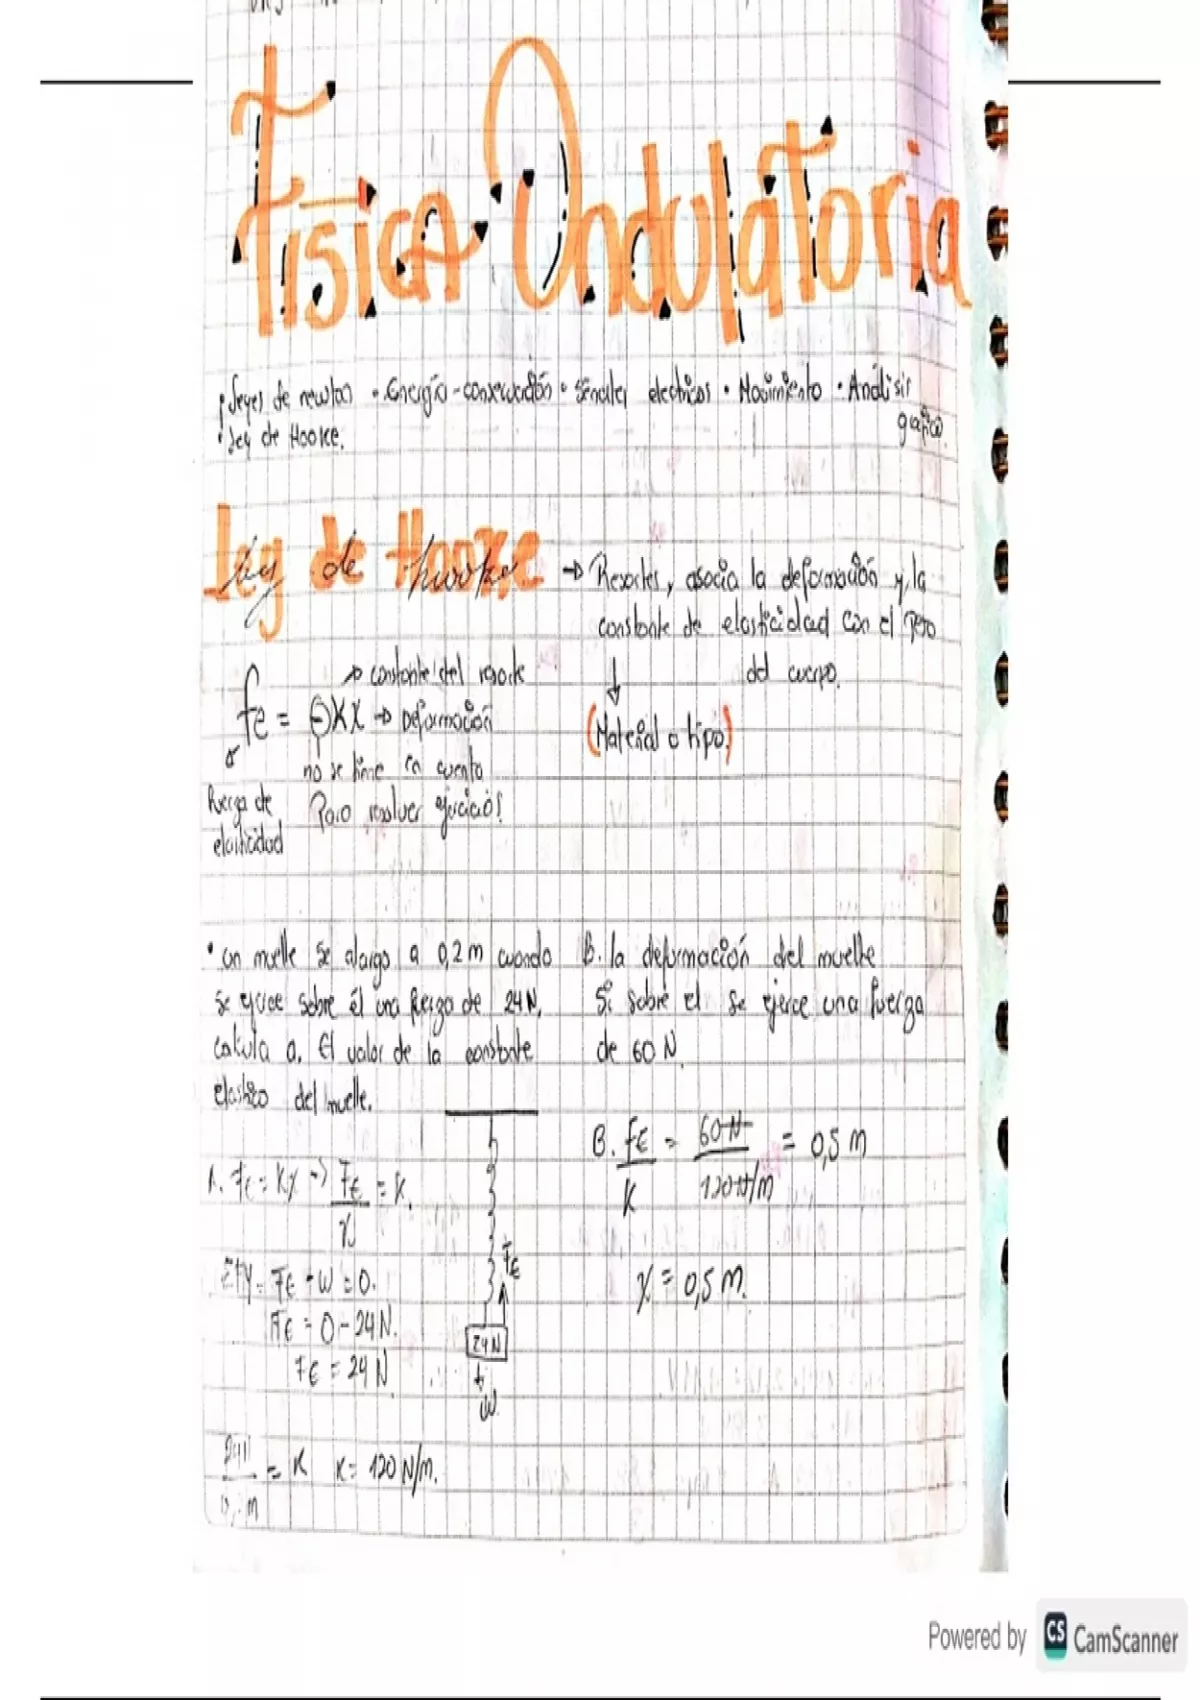 Física Ondulatoria
• Leyes de newton • Energía-conservación • señales electricas • Movimiento • Análisis
grafico.
• Ley de Hooke.
Ley de Hooke → Resortes, asocia la deformación y la
constante de elasticidad con el peso
del cuerpo.
(Material o tipo.)
→ constante del resorte
fe = ⊖KX → Deformación
no se tiene en cuenta
Para resolver ejercicios!
fuerza de
elasticidad
• un muelle se alarga a 0,2 m cuando
se ejerce sobre él una fuerza de 24 N,
calcula a. El valor de la constante
elastica del muelle.
B. la deformación del muelle
Si sobre el se ejerce una fuerza
de 60 N.
A. Fe = KX → Fe = K.
X
ΣFy = Fe - W = 0.
Fe = 0 - 24 N.
Fe = 24 N
= K K = 120 N/m.
Fe
24 N
W
B. Fe = 60 N = 0,5 m
K 120 N/m
X = 0,5 m.
Powered by CS CamScanner